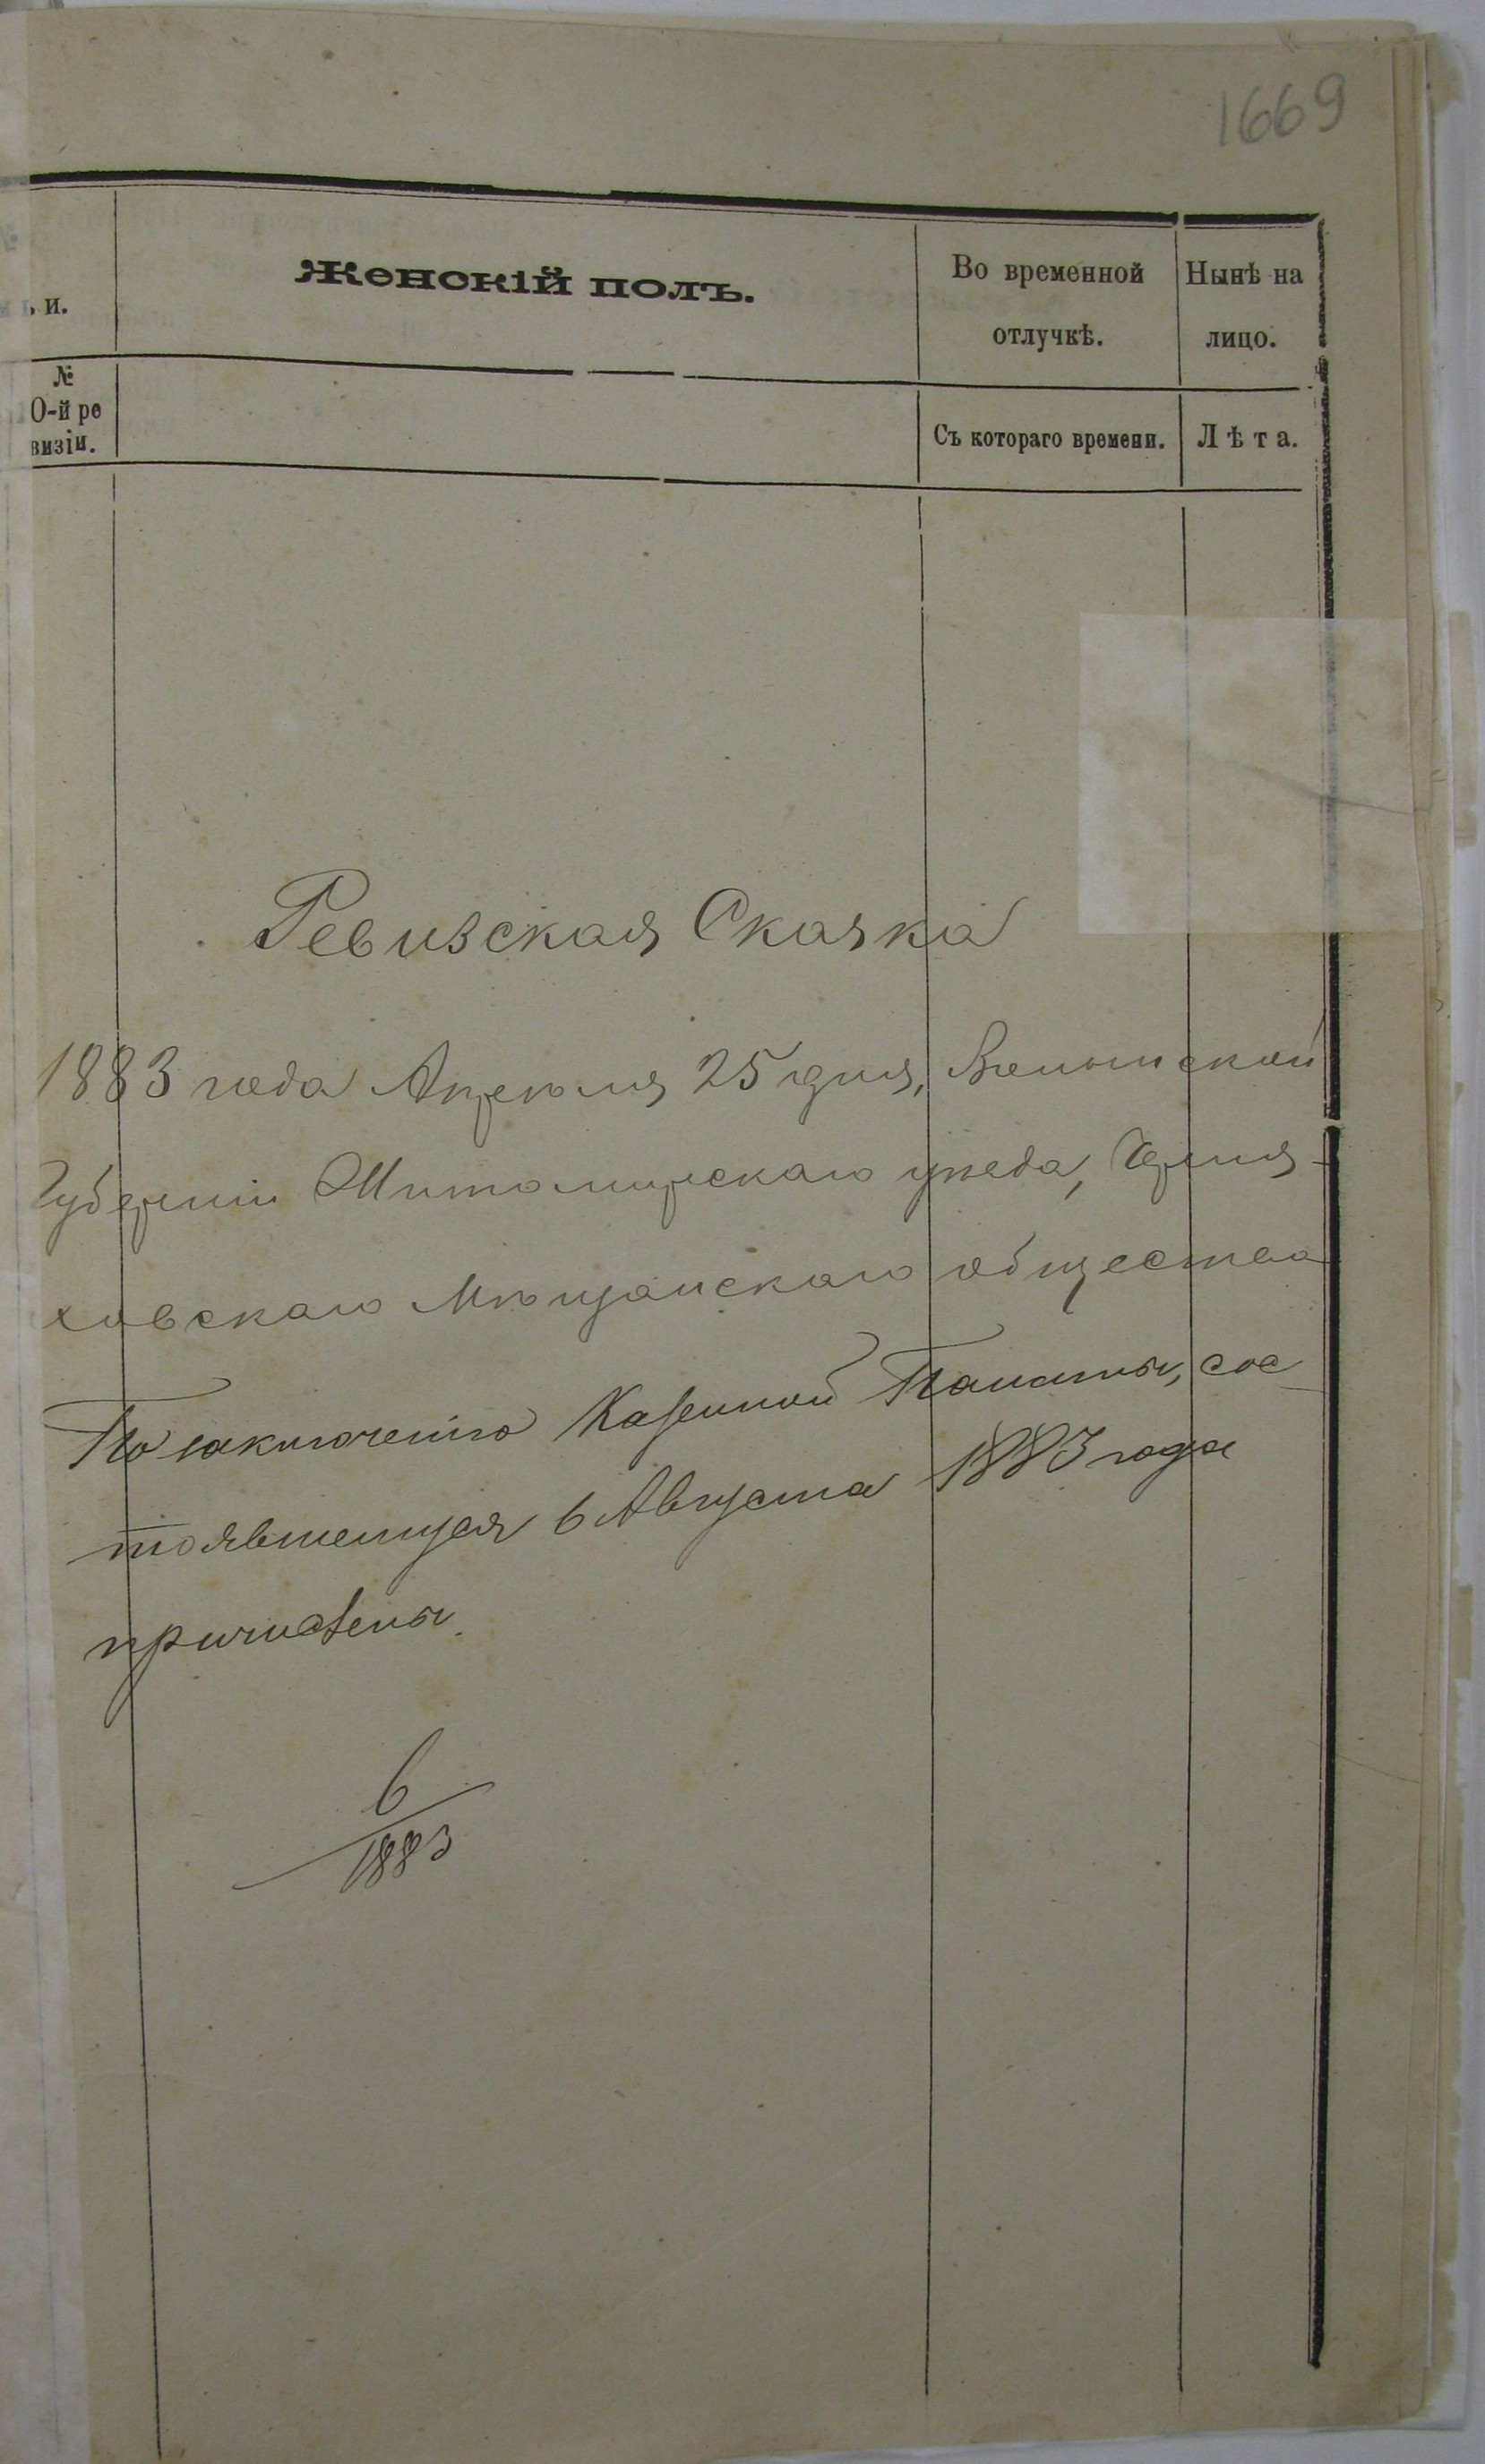 1669
ьи.
Женскій полъ.
Во временной
отлучкѣ.
Нынѣ на
лицо.
№
0-й ре
визіи.
Съ котораго времени.
Лѣта.
Ревизская Сказка
1883 года Апреля 25 дня, Волынской
Губерніи Житомирскаго уѣзда, Черня-
ховскаго Мѣщанскаго общества
По заключенію Казенной Палаты, сос-
тоявшемуся 6 Августа 1883 года
причислены
6
1883